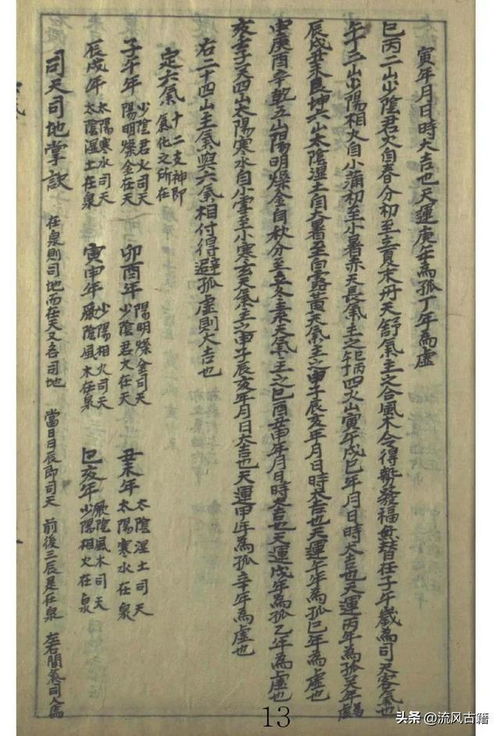 寅年月日時大吉也天運庚年為孤丁年為虛
巳丙二山少陰君火自春分初至立夏末丹天舒氣主之合風木令得斬發福無替在子午歲為司天客氣也
午丁二山少陽相火自小滿初至小暑赤天長氣主之炬丙四火山寅午戌巳年月日時大吉也天運丙年為孤癸年為虛
辰戌丑未艮坤六山太陰濕土自大暑至白露黃天氣主之申子辰亥年月日時大吉也天運壬年為孤巳年為虛也
申庚酉辛乾五山陽明燥金自秋分至立冬素天氣主之巳酉丑申年月日時大吉也天運戊年為孤乙年為虛也
亥壬子癸四山太陽寒水自小雪至小寒玄天氣主之申子辰亥年月日大吉也天運甲年為孤辛年為虛也
右二十四山主氣與六氣相付得避孤虛則大吉也
定六氣 十二支神即氣化之所在
子午年 少陰君火司天 陽明燥金在天
卯酉年 陽明燥金司天 少陰君火在天
丑未年 太陰湿土司天 太陽寒水在泉
辰戌年 太陽寒水司天 太陰湿土在泉
寅申年 少陽相火司天 厥陰風木在泉
巳亥年 厥陰風木司天 少陽相火在泉
司天司地掌訣 在泉則司地而在天又各司地 當日日辰即司天 前後三辰是在泉 左右間氣司人
13
头条 @流风古籍